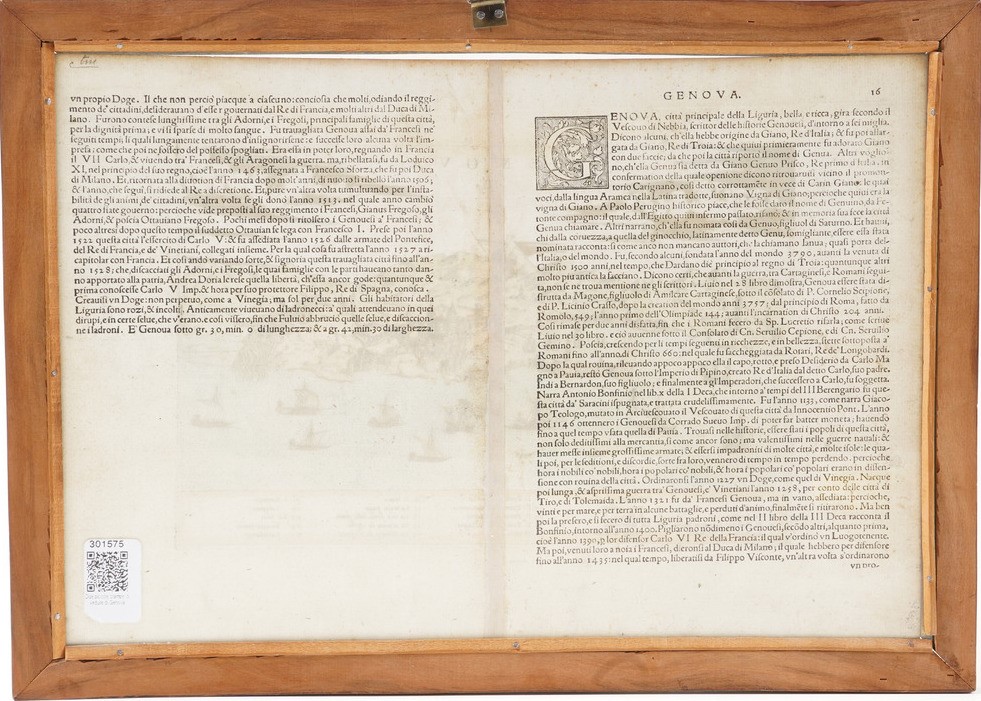 vn propio Doge. Il che non perciò piacque à ciascuno: conciosia che molti, odiando il reggi-
mento de' cittadini, desiderauano d'esser gouernati dal Re di Francia, e molti altri dal Duca di Mi-
lano. Furono contese lunghissime tra gli Adorni, e i Fregosi, principali famiglie di questa città,
per la dignità prima; e vi si sparse di molto sangue. Fu trauagliata Genoua assai da' Francesi ne'
seguiti tempi, li quali lungamente tentarono d'insignorirsene; e succeße loro alcuna volta l'im-
presa: come che poi ne fossero del possesso spogliati. Era essa in poter loro, regnando in Francia
il VII Carlo, & viuendo tra' Francesi, & gli Aragonesi la guerra. ma, ribellatasi, fu da Lodouico
XI, nel principio del suo regno, cioè l'anno 1461, assegnata à Francesco Sforza, che fu poi Duca
di Milano. Et, ritornata alla diuotion di Francia dopo molt'anni, di nuouo si ribellò l'anno 1506;
& l'anno, che seguì, si ridiede al Re a discretione. Et, pure vn'altra volta tumultuando per l'insta-
bilità de gli animi de' cittadini, vn'altra volta se gli donò l'anno 1513. nel quale anno cambiò
quattro fiate gouerno: percioche vide preposti al suo reggimento i Francesi, Gianus Fregoso, gli
Adorni, & poscia Ottauiano Fregoso. Pochi mesi dopo si ritolsero i Genouesi a' Francesi; &
poco altresi dopo questo tempo il suddetto Ottauian se lega con Francesco I. Prese poi l'anno
1522 questa città l'essercito di Carlo V: & fu assediata l'anno 1526 dalle armate del Pontefice,
del Re di Francia, e de' Vinetiani, collegati insieme. Per la qual cosa fu astretta l'anno 1527 a ri-
capitolar con Francia. Et così andò variando sorte, & signoria questa trauagliata città fino all'an-
no 1528: che, discacciati gli Adorni, e i Fregosi, le quai famiglie con le parti haueano tanto dan-
no apportato alla patria, Andrea Doria le rese quella libertà, ch'essa ancor gode: quantunque &
prima conoscesse Carlo V Imp. & hora per suo protettore Filippo, Re di Spagna, conosca.
Creausi vn Doge: non perpetuo, come a Vinegia; ma sol per due anni. Gli habitatori della
Liguria sono rozi, & incolti. Anticamente viueano di ladronecci: a' quali attendeuano in quei
dirupi, e in certe selue, che v'erano. e così vissero, fin che Fuluio abbruciò quelle selue, e discaccion-
ne i ladroni. E' Genoua sotto gr. 30, min. 0 di lunghezza; & a gr. 42, min. 30 di larghezza.
301575
GENOVA. 16
GENOVA, città principale della Liguria, bella, e ricca, gira secondo il
Vescouo di Nebbia, scrittor delle historie Genouesi, d'intorno a sei miglia.
Dicono alcuni, ch'ella hebbe origine da Giano, Re d'Italia; & fu poi allar-
gata da Giano, Re di Troia: & che quiui primieramente fu adorato Giano
con due faccie; da che poi la città riportò il nome di Genua. Altri voglio-
no, ch'ella Genua sia detta da Giano Genio Prisco, Re primo d'Italia. in
confermation della quale openione dicono ritrouaruisi vicino il promon-
torio Carignano, così detto corrottamente in vece di Carin Giano: le quai
voci, dalla lingua Aramea nella Latina tradotte, suonano Vigna di Giano; percioche quiui era la
vigna di Giano. A Paolo Perugino historico piace, che le fosse dato il nome da Genuino, da Fe-
tonte compagno: il quale, dall'Egitto quiui infermo passato, risanò; & in memoria sua fece la città
Genua chiamare. Altri narrano, ch'ella fu nomata così da Genuo, figliuol di Saturno. Et hauui,
chi dalla coruezza, a quella del ginocchio, latinamente detto Genu, somigliante, essere essa stata
nominata racconta: sì come anco non mancano auttori, che la chiamano Ianua; quasi porta del-
l'Italia, o del mondo. Fu, secondo alcuni, fondata l'anno del mondo 3790, auanti la venuta di
Christo 1500 anni, nel tempo, che Dardano diè principio al regno di Troia: quantunque altri
molto piu antica la facciano. Dicono certi, che auanti la guerra, tra Cartaginesi, e Romani segui-
ta, non se ne troua mentione ne gli scrittori. Liuio nel 28 libro dimostra, Genoua essere stata di-
strutta da Magone, figliuolo di Amilcare Cartaginese, sotto il cōsolato di P. Cornelio Scipione,
e di P. Licinio Crasso, dopo la creation del mondo anni 3757; dal principio di Roma, fatto da
Romolo, 549; l'anno primo dell'Olimpiade 144; auanti l'incarnation di Christo 204 anni.
Così rimase per due anni disfatta, fin che i Romani fecero da Sp. Lucretio rifarla; come scriue
Liuio nel 30 libro. e ciò auuenne sotto il Consolato di Cn. Seruilio Cepione, e di Cn. Seruilio
Gemino. Poscia, crescendo per li tempi seguenti in ricchezze, e in bellezza, stette sottoposta a'
Romani fino all'anno di Christo 660: nel quale fu saccheggiata da Rotari, Re de' Longobardi.
Dopo la qual rouina, rileuando appoco appoco ella il capo, rotto, e preso Desiderio da Carlo Ma
gno a Pauia, restò Genoua sotto l'Imperio di Pipino, creato Re d'Italia dal detto Carlo, suo padre.
Indi a Bernardon, suo figliuolo; e finalmente a gl'Imperadori, che successero a Carlo, fu soggetta.
Narra Antonio Bonfinio nel lib. x della I Deca, che intorno a' tempi del III Berengario fu que-
sta città da' Saracini ispugnata, e trattata crudelissimamente. Fu l'anno 1133, come narra Giaco-
po Teologo, mutato in Arciuescouato il Vescouato di questa città da Innocentio Pont. L'anno
poi 1146 ottennero i Genouesi da Corrado Sueuo Imp. di poter far batter moneta; hauendo
fino a quel tempo vsata quella di Pauia. Trouasi nelle historie, essere stati i popoli di questa città,
non solo deditissimi alla mercantia, sì come ancor sono; ma valentissimi nelle guerre nauali: &
hauer messe insieme grossissime armate; & essersi impadroniti di molte città, e molte isole: le qua-
li poi, per le seditioni, e discordie, sorte fra loro, vennero di tempo in tempo perdendo. percioche
hora i nobili co' nobili, & hora i popolari co' nobili, & hora i popolari co' popolari erano in dissen-
sione con rouina della città. Ordinaronsi l'anno 1227 vn Doge, come quel di Vinegia. Nacque
poi lunga, & asprissima guerra tra' Genouesi, e' Vinetiani l'anno 1258, per conto delle città di
Tiro, e di Tolemaida. L'anno 1321 fu da' Francesi Genoua, ma in vano, assediata: percioche,
vinti e per mare, e per terra in alcune battaglie, e perduti d'animo, finalmēte si ritirarono. Ma ben
poi la presero, e si fecero di tutta Liguria padroni, come nel II libro della III Deca racconta il
Bonfinio, intorno all'anno 1400. Pigliarono nōdimeno i Genouesi, secōdo altri, alquanto prima,
cioè l'anno 1390, p lor difensor Carlo VI Re della Francia: il qual v'ordinò vn Luogotenente.
Ma poi, venuti loro a noia i Francesi, dieronsi al Duca di Milano; il quale hebbero per difensore
fino all'anno 1435: nel qual tempo, liberatisi da Filippo Visconte, vn'altra volta s'ordinarono
vn pro-